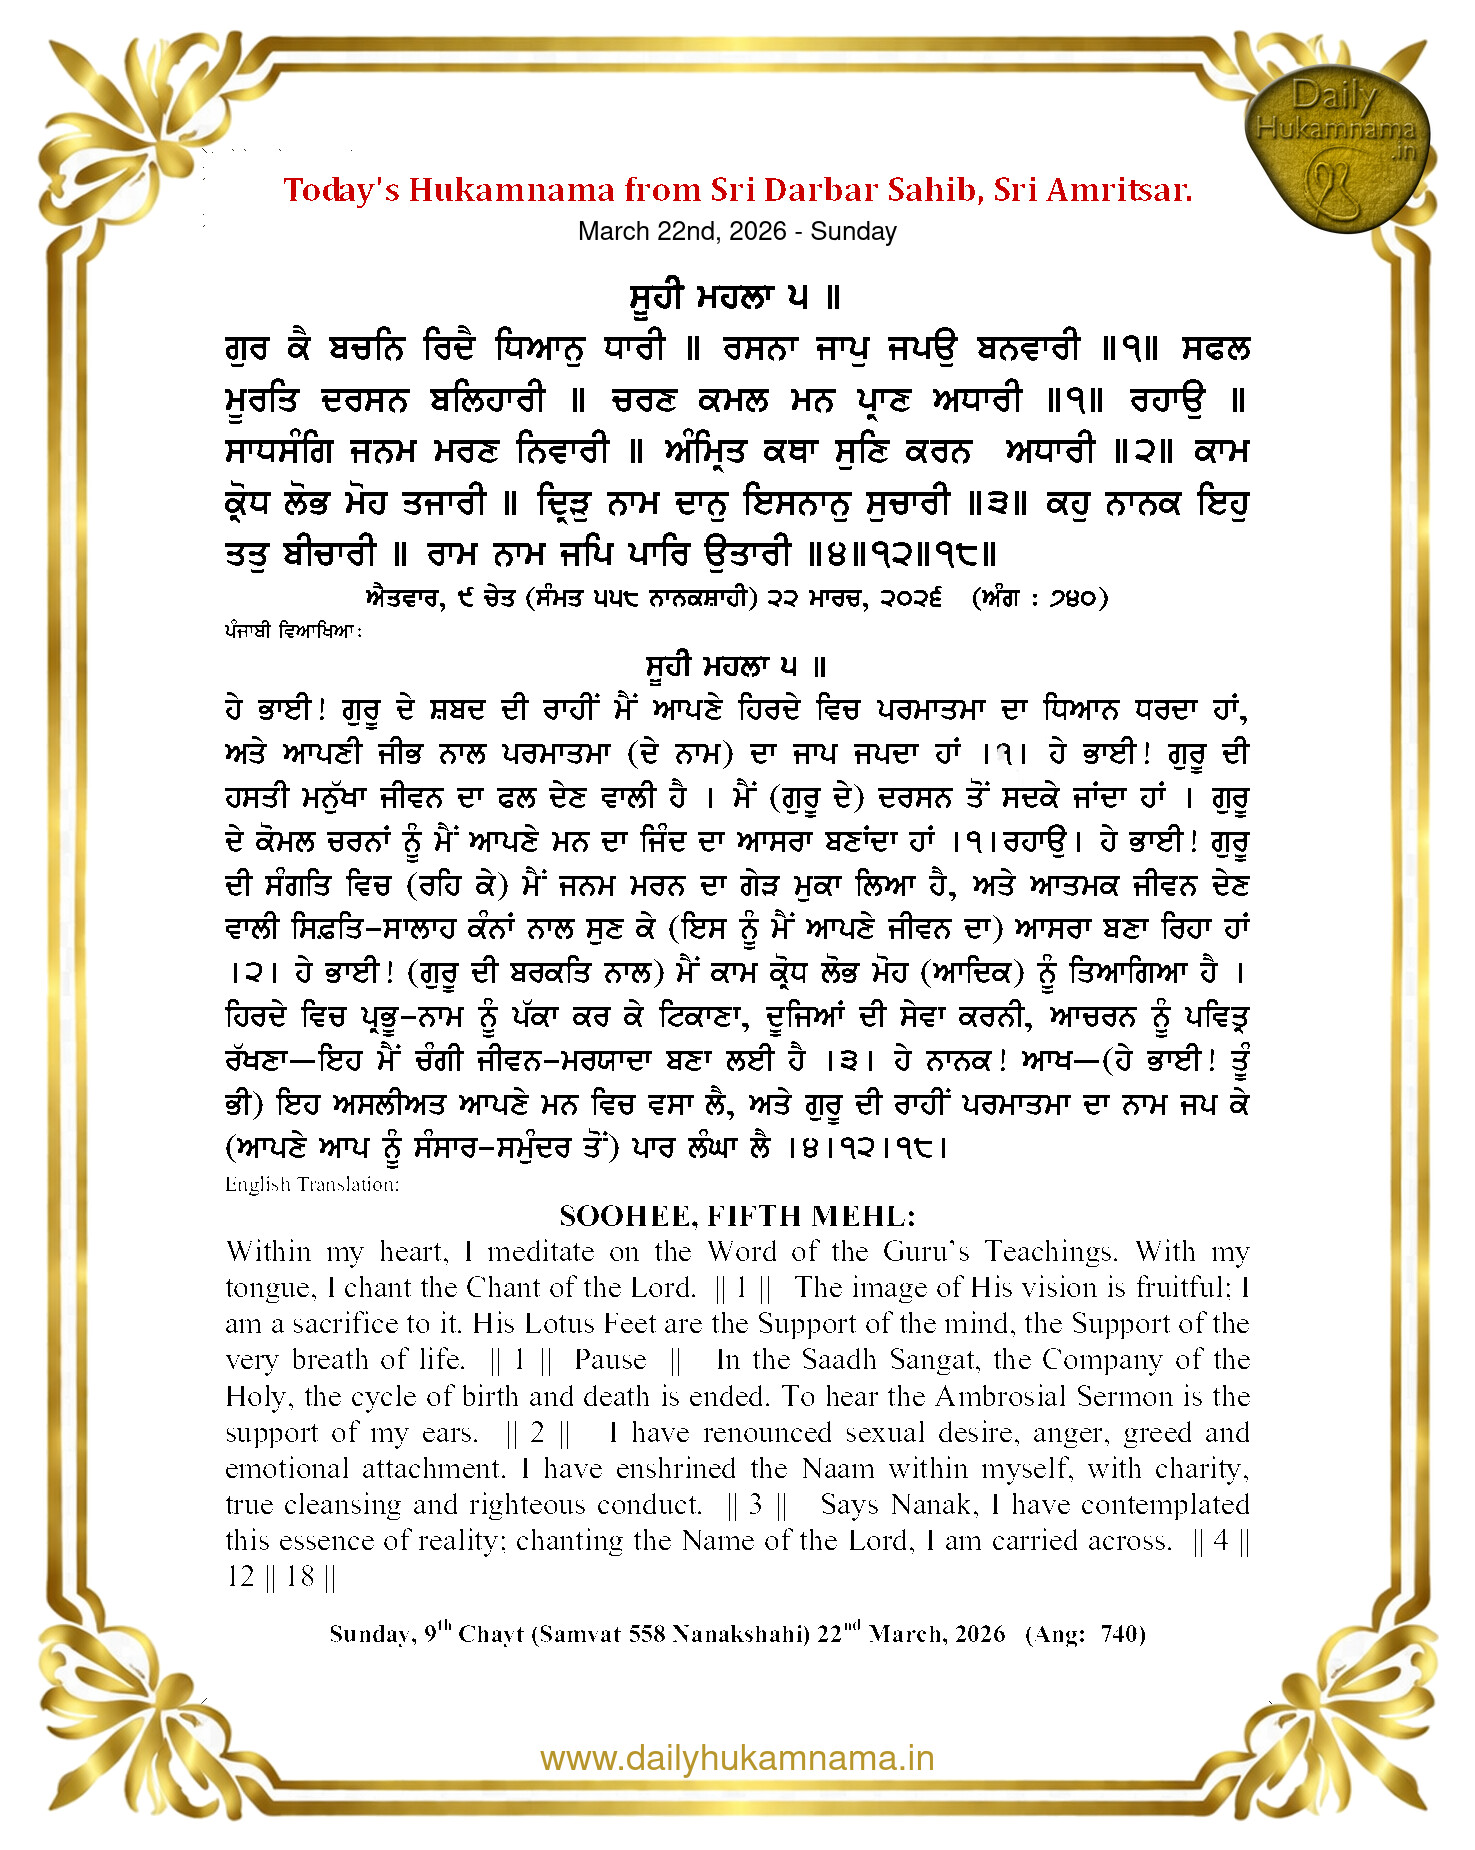 Daily
Hukamnama
.in
Today's Hukamnama from Sri Darbar Sahib, Sri Amritsar.
March 22nd, 2026 - Sunday
ਸੂਹੀ ਮਹਲਾ ੫ ॥
ਗੁਰ ਕੈ ਬਚਨਿ ਰਿਦੈ ਧਿਆਨੁ ਧਾਰੀ ॥ ਰਸਨਾ ਜਾਪੁ ਜਪਉ ਬਨਵਾਰੀ ॥੧॥ ਸਫਲ
ਮੂਰਤਿ ਦਰਸਨ ਬਲਿਹਾਰੀ ॥ ਚਰਣ ਕਮਲ ਮਨ ਪ੍ਰਾਣ ਅਧਾਰੀ ॥੧॥ ਰਹਾਉ ॥
ਸਾਧਸੰਗਿ ਜਨਮ ਮਰਣ ਨਿਵਾਰੀ ॥ ਅੰਮ੍ਰਿਤ ਕਥਾ ਸੁਣਿ ਕਰਨ ਅਧਾਰੀ ॥੨॥ ਕਾਮ
ਕ੍ਰੋਧ ਲੋਭ ਮੋਹ ਤਜਾਰੀ ॥ ਦ੍ਰਿੜੁ ਨਾਮ ਦਾਨੁ ਇਸਨਾਨੁ ਸੁਚਾਰੀ ॥੩॥ ਕਹੁ ਨਾਨਕ ਇਹੁ
ਤਤੁ ਬੀਚਾਰੀ ॥ ਰਾਮ ਨਾਮ ਜਪਿ ਪਾਰਿ ਉਤਾਰੀ ॥੪॥੧੨॥੧੮॥
ਐਤਵਾਰ, ੯ ਚੇਤ (ਸੰਮਤ ੫੫੮ ਨਾਨਕਸ਼ਾਹੀ) ੨੨ ਮਾਰਚ, ੨੦੨੬ (ਅੰਗ : ੭੪੦)
ਪੰਜਾਬੀ ਵਿਆਖਿਆ:
ਸੂਹੀ ਮਹਲਾ ੫ ॥
ਹੇ ਭਾਈ! ਗੁਰੂ ਦੇ ਸ਼ਬਦ ਦੀ ਰਾਹੀਂ ਮੈਂ ਆਪਣੇ ਹਿਰਦੇ ਵਿਚ ਪਰਮਾਤਮਾ ਦਾ ਧਿਆਨ ਧਰਦਾ ਹਾਂ,
ਅਤੇ ਆਪਣੀ ਜੀਭ ਨਾਲ ਪਰਮਾਤਮਾ (ਦੇ ਨਾਮ) ਦਾ ਜਾਪ ਜਪਦਾ ਹਾਂ ।੧। ਹੇ ਭਾਈ! ਗੁਰੂ ਦੀ
ਹਸਤੀ ਮਨੁੱਖਾ ਜੀਵਨ ਦਾ ਫਲ ਦੇਣ ਵਾਲੀ ਹੈ । ਮੈਂ (ਗੁਰੂ ਦੇ) ਦਰਸਨ ਤੋਂ ਸਦਕੇ ਜਾਂਦਾ ਹਾਂ । ਗੁਰੂ
ਦੇ ਕੋਮਲ ਚਰਨਾਂ ਨੂੰ ਮੈਂ ਆਪਣੇ ਮਨ ਦਾ ਜਿੰਦ ਦਾ ਆਸਰਾ ਬਣਾਂਦਾ ਹਾਂ ।੧।ਰਹਾਉ। ਹੇ ਭਾਈ! ਗੁਰੂ
ਦੀ ਸੰਗਤਿ ਵਿਚ (ਰਹਿ ਕੇ) ਮੈਂ ਜਨਮ ਮਰਨ ਦਾ ਗੇੜ ਮੁਕਾ ਲਿਆ ਹੈ, ਅਤੇ ਆਤਮਕ ਜੀਵਨ ਦੇਣ
ਵਾਲੀ ਸਿਫ਼ਤਿ-ਸਾਲਾਹ ਕੰਨਾਂ ਨਾਲ ਸੁਣ ਕੇ (ਇਸ ਨੂੰ ਮੈਂ ਆਪਣੇ ਜੀਵਨ ਦਾ) ਆਸਰਾ ਬਣਾ ਰਿਹਾ ਹਾਂ
।੨। ਹੇ ਭਾਈ! (ਗੁਰੂ ਦੀ ਬਰਕਤਿ ਨਾਲ) ਮੈਂ ਕਾਮ ਕ੍ਰੋਧ ਲੋਭ ਮੋਹ (ਆਦਿਕ) ਨੂੰ ਤਿਆਗਿਆ ਹੈ ।
ਹਿਰਦੇ ਵਿਚ ਪ੍ਰਭੂ-ਨਾਮ ਨੂੰ ਪੱਕਾ ਕਰ ਕੇ ਟਿਕਾਣਾ, ਦੂਜਿਆਂ ਦੀ ਸੇਵਾ ਕਰਨੀ, ਆਚਰਨ ਨੂੰ ਪਵਿਤ੍ਰ
ਰੱਖਣਾ—ਇਹ ਮੈਂ ਚੰਗੀ ਜੀਵਨ-ਮਰਯਾਦਾ ਬਣਾ ਲਈ ਹੈ ।੩। ਹੇ ਨਾਨਕ! ਆਖ—(ਹੇ ਭਾਈ! ਤੂੰ
ਭੀ) ਇਹ ਅਸਲੀਅਤ ਆਪਣੇ ਮਨ ਵਿਚ ਵਸਾ ਲੈ, ਅਤੇ ਗੁਰੂ ਦੀ ਰਾਹੀਂ ਪਰਮਾਤਮਾ ਦਾ ਨਾਮ ਜਪ ਕੇ
(ਆਪਣੇ ਆਪ ਨੂੰ ਸੰਸਾਰ-ਸਮੁੰਦਰ ਤੋਂ) ਪਾਰ ਲੰਘਾ ਲੈ ।੪।੧੨।੧੮।
English Translation:
SOOHEE, FIFTH MEHL:
Within my heart, I meditate on the Word of the Guru’s Teachings. With my
tongue, I chant the Chant of the Lord. || 1 || The image of His vision is fruitful; I
am a sacrifice to it. His Lotus Feet are the Support of the mind, the Support of the
very breath of life. || 1 || Pause || In the Saadh Sangat, the Company of the
Holy, the cycle of birth and death is ended. To hear the Ambrosial Sermon is the
support of my ears. || 2 || I have renounced sexual desire, anger, greed and
emotional attachment. I have enshrined the Naam within myself, with charity,
true cleansing and righteous conduct. || 3 || Says Nanak, I have contemplated
this essence of reality; chanting the Name of the Lord, I am carried across. || 4 ||
12 || 18 ||
Sunday, 9th Chayt (Samvat 558 Nanakshahi) 22nd March, 2026 (Ang: 740)
www.dailyhukamnama.in